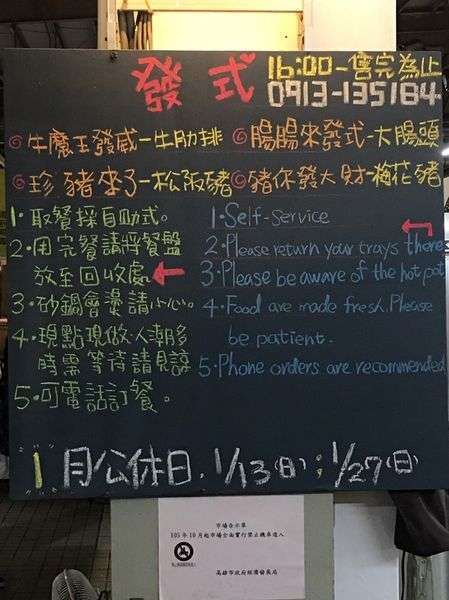 發式
16:00-售完為止
0913-135184
牛魔王發威-牛肋排
腸腸來發式-大腸頭
珍豬來了-松阪豬
豬你發大財-梅花豬
1.取餐採自助式。
2.用完餐請將餐盤
放至回收處
3.砂鍋會燙請小心。
4.現點現做、人潮多
時需等待請見諒
5.可電話訂餐。
1.Self-Service
2.Please return your trays there
3.Please be aware of the hot pot
4.Food are made fresh. Please
be patient.
5.Phone orders are recommended
1月公休日, 1/13(日);1/27(日)
市場告示單
105年10月起市場全面實行禁止機車進入
高雄市政府經濟發展局